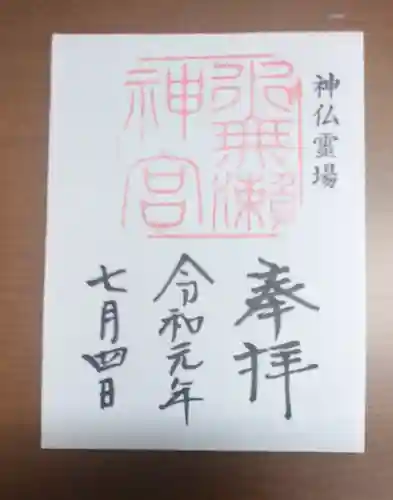 神仏霊場
奉拝
水無瀬
神宮
令和元年
七月四日